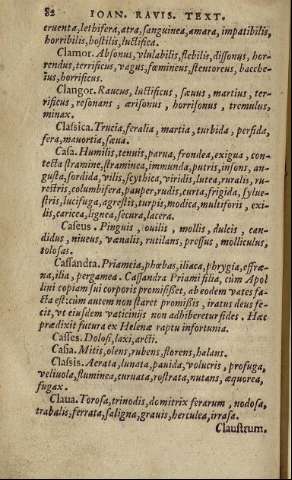 82 IOAN. RAVIS. TEXT.
cruenta, lethifera, atra, sanguinea, amara, impatibilis,
horribilis, hostilis, luctifica.
Clamor. Absonus, vlulabilis, flebilis, dissonus, hor-
rendus, terrificus, vagus, fœmineus, stentoreus, bacche-
ius, horrificus.
Clangor. Raucus, luctificus, sæuus, martius, ter-
rificus, resonans, ærisonus, horrisonus, tremulus,
minax.
Classica. Trucia, feralia, martia, turbida, perfida,
fera, mauortia, sæua.
Casa. Humilis, tenuis, parua, frondea, exigua, con-
tecta stramine, straminea, immunda, putris, insons, an-
gusta, sordida, vilis, scythica, viridis, lutea, ruralis, ru-
restris, columbifera, pauper, rudis, curta, frigida, sylue-
stris, lucifuga, agrestis, turpis, modica, multiforis, exi-
lis, caricea, lignea, secura, lacera.
Caseus. Pinguis, ouilis, mollis, dulcis, can-
didus, niueus, vænalis, rutilans, pressus, molliculus,
Cassandra. Priameia, phœbas, iliaca, phrygia, effræ-
na, ilia, pergamea. Cassandra Priami filia, cum Apol
lini copiam sui corporis promisisset, ab eodem vates fa-
cta est: cùm autem non staret promissis, iratus deus fe-
cit, vt eiusdem vaticinijs non adhiberetur fides. Hæc
prædixit futura ex Helenæ raptu infortunia.
Casses. Dolosi, laxi, arcti.
Casia. Mitis, olens, rubens, florens, halans.
Classis. Aerata, lunata, pauida, volucris, profuga,
veliuola, fluminea, curuata, rostrata, nutans, æquorea,
fugax.
Claua. Torosa, trinodis, domitrix ferarum, nodosa,
trabalis, ferrata, saligna, grauis, herculea, irrasa.
Claustrum.